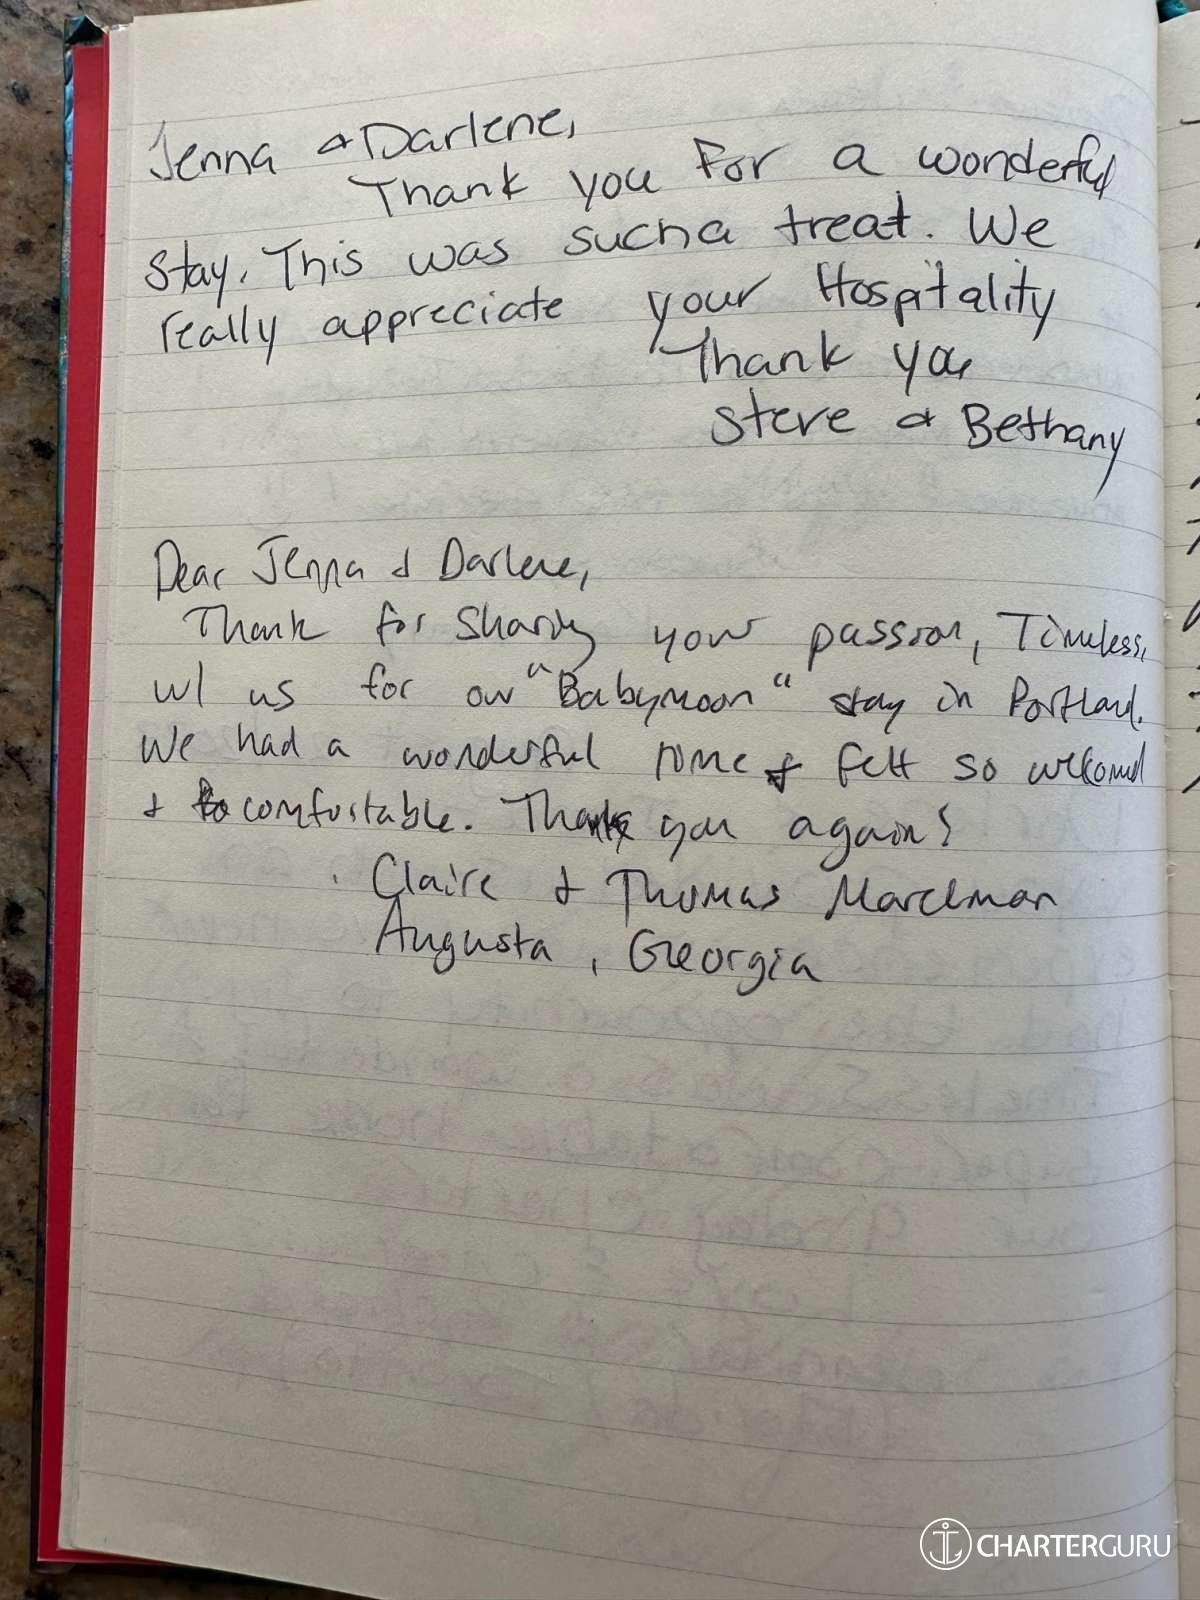 Jenna & Darlene,
Thank you For a wonderful
stay. This was such a treat. We
really appreciate your Hospitality
Thank you
Steve & Bethany
Dear Jenna & Darlene,
Thank for sharing your passion, Timeless,
w/ us for our "Babymoon" stay in Portland.
We had a wonderful time & felt so welcomed
& comfortable. Thank you again!
Claire & Thomas
Augusta, Georgia
CHARTERGURU